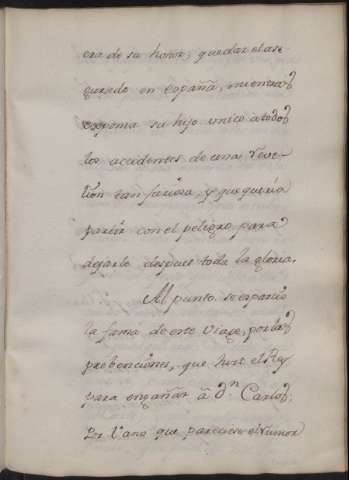 era de su honor, quedar el ase-
gurado en españa, mientras
exponia su hijo unico a todos
los accidentes de una reve-
lion tan furiosa, y que queria
partir con el peligro para
dejarle despues toda la gloria.
Al punto se esparcio
la fama de este viage, por las
prebenciones, que hizo el Rey
para engañar â dn Carlos.
Por vano que pareciese el rumor